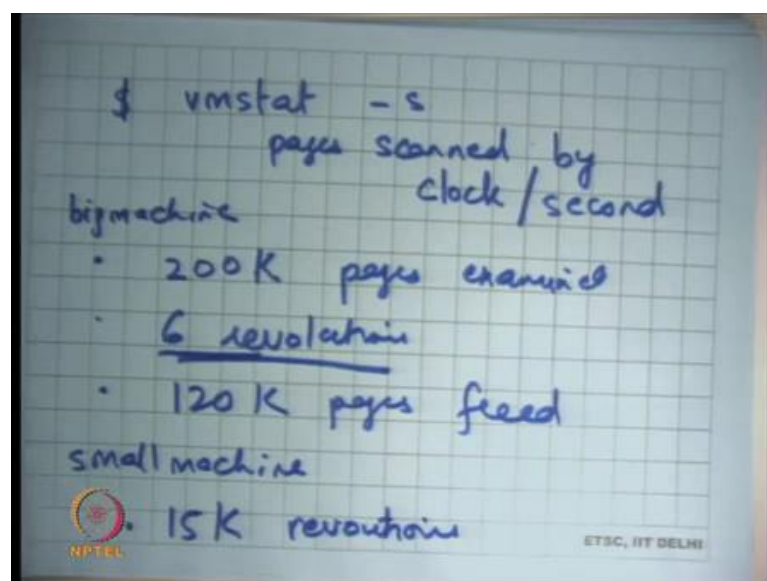 $ vmstat -s
pages scanned by
clock / second
bigmachine
• 200K pages examined
• 6 revolutions
• 120K pages freed
small machine
• 15K revoutions
NPTEL
ETSC, IIT DELHI